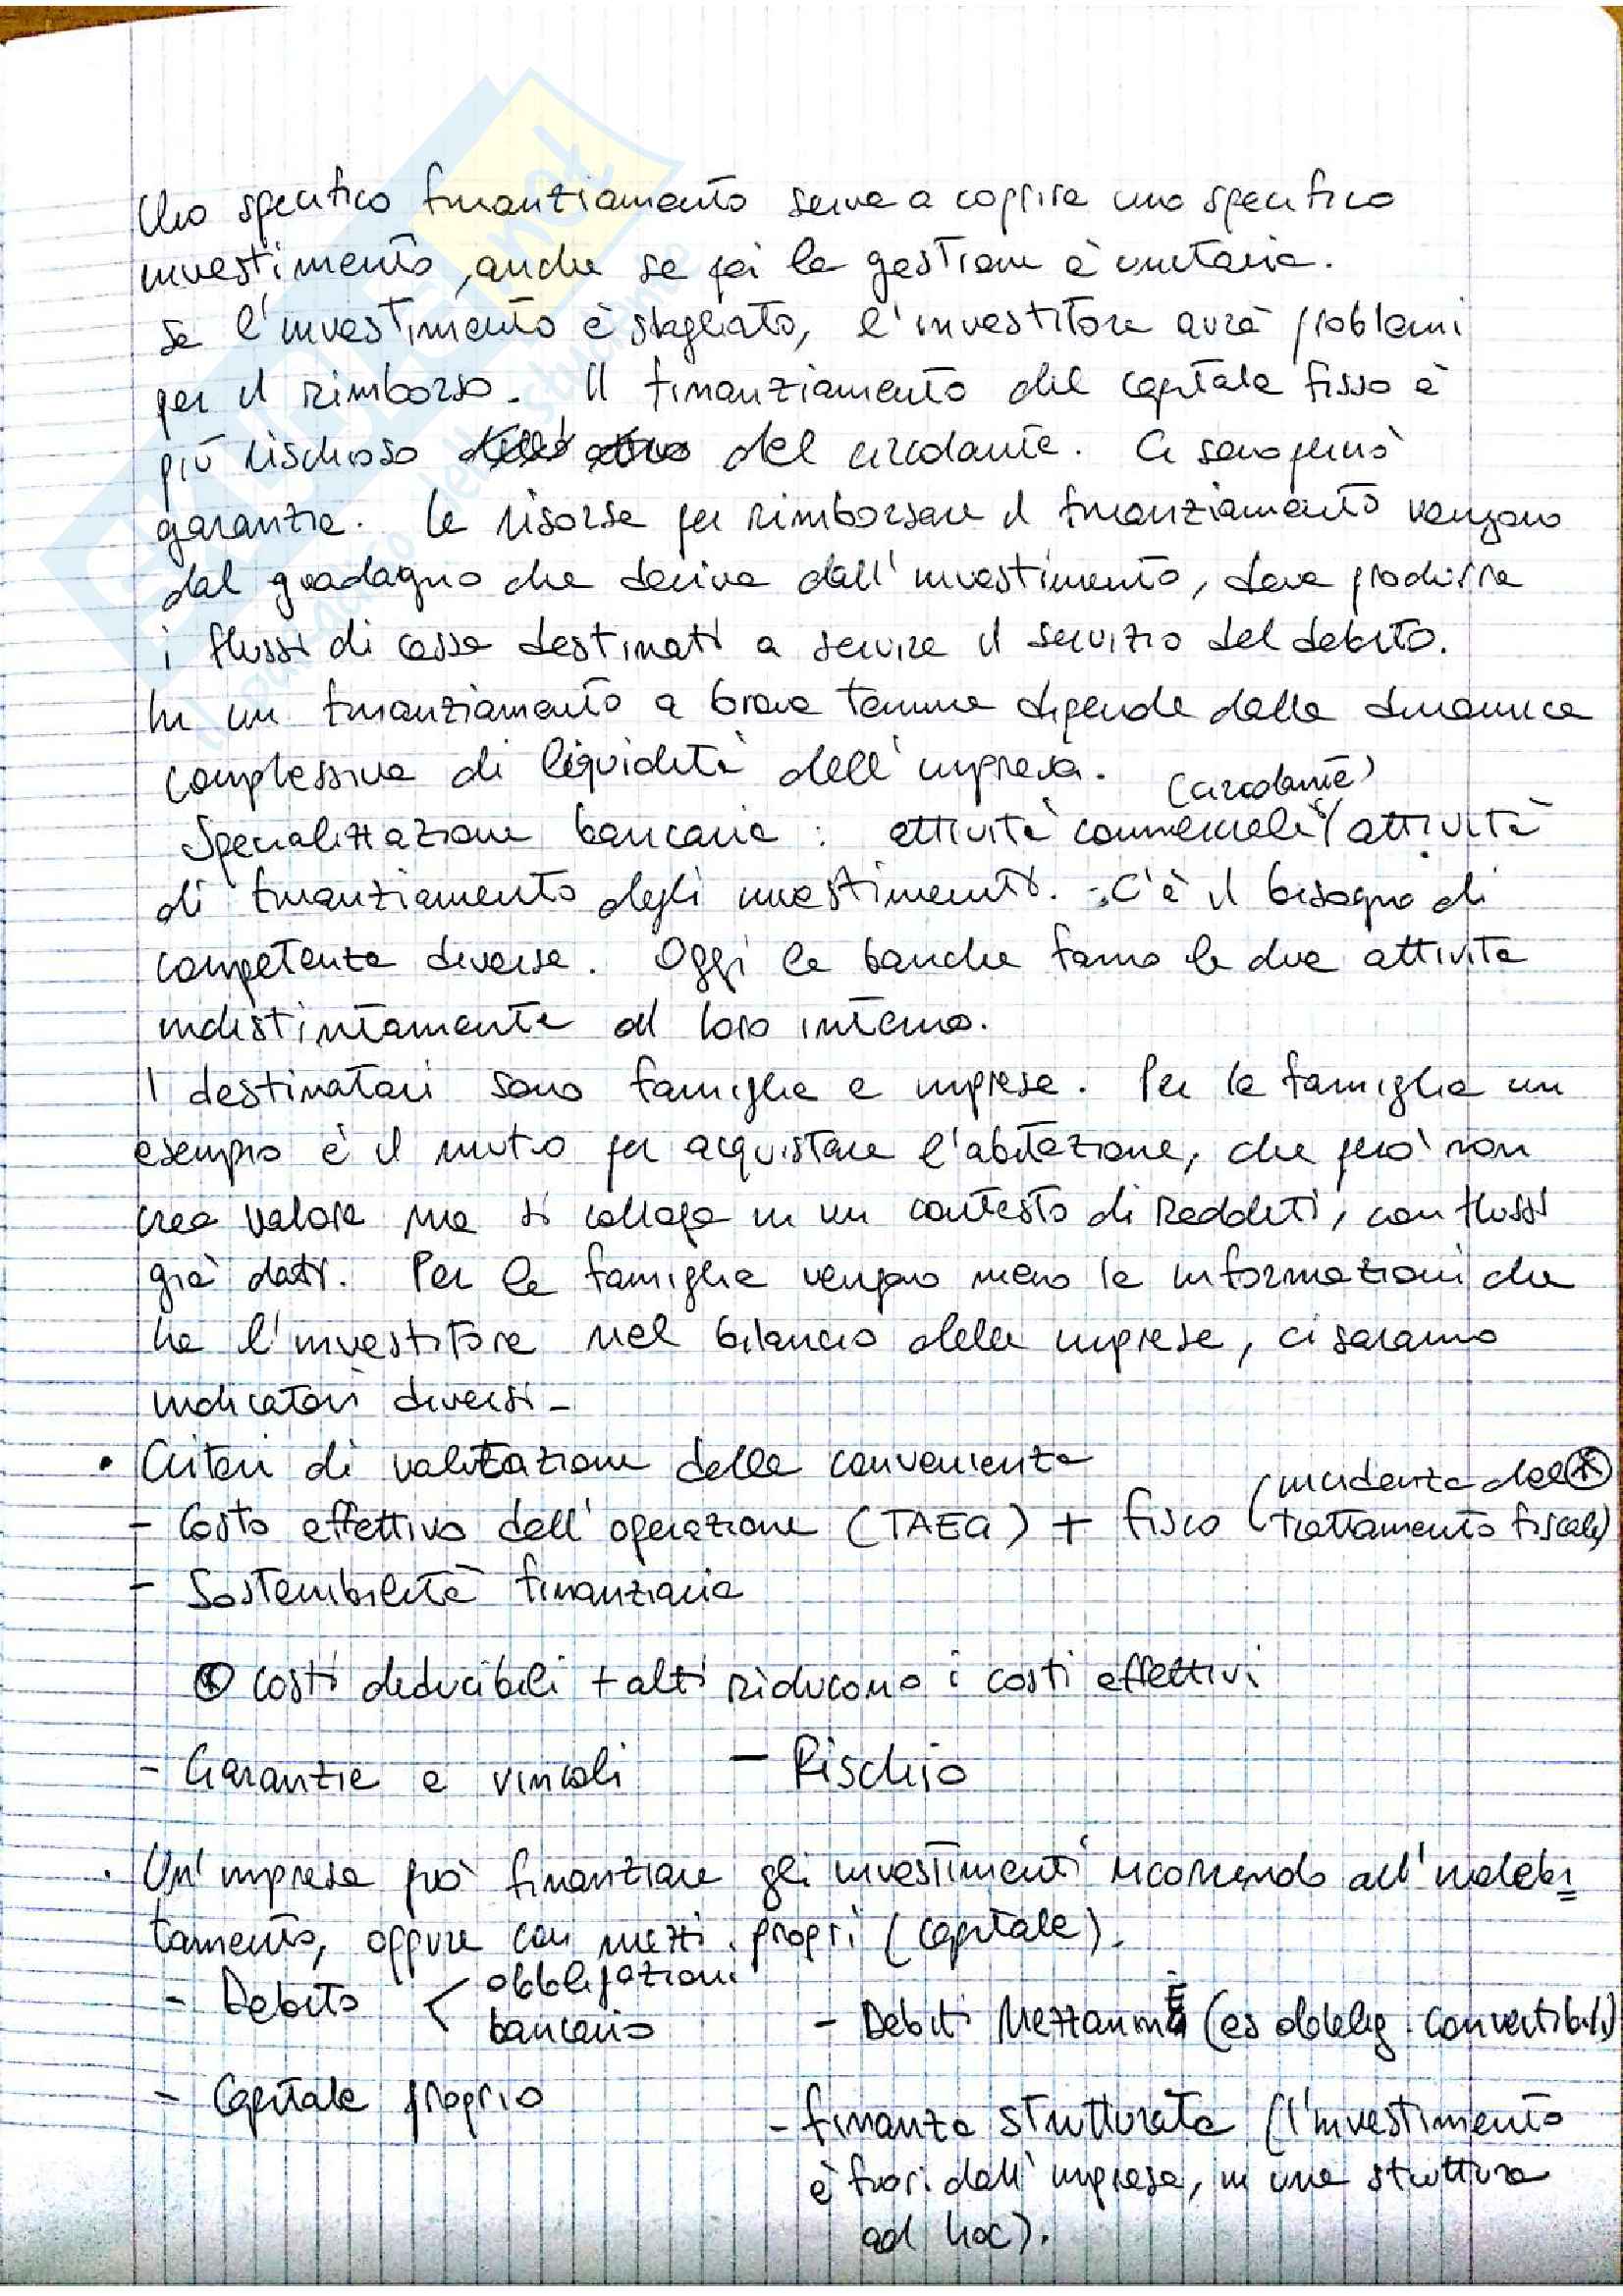 Uno specifico finanziamento serve a coprire uno specifico
investimento, anche se poi la gestione è unitaria.
Se l'investimento è sbagliato, l'investitore avrà problemi
per il rimborso. Il finanziamento del capitale fisso è
più rischioso del circolante. Ci sono però
garanzie. Le risorse per rimborsare il finanziamento vengono
dal guadagno che deriva dall'investimento, deve produrre
i flussi di cassa destinati a servire il servizio del debito.
In un finanziamento a breve termine dipende dalla dinamica
complessiva di liquidità dell'impresa.
(circolante)
Specializzazione bancaria : attività commerciali / attività
di finanziamento degli investimenti. C'è il bisogno di
competenze diverse. Oggi le banche fanno le due attività
indistintamente al loro interno.
I destinatari sono famiglie e imprese. Per le famiglie un
esempio è il mutuo per acquistare l'abitazione, che però non
crea valore ma si colloca in un contesto di redditi, con flussi
già dati. Per le famiglie vengono meno le informazioni che
ha l'investitore nel bilancio delle imprese, ci saranno
indicatori diversi -
• Criteri di valutazione della convenienza
- Costo effettivo dell'operazione (TAEG) + fisco (incidenza del * trattamento fiscale)
- Sostenibilità finanziaria
* costi deducibili + alti riducono i costi effettivi
- Garanzie e vincoli - Rischio
• Un'impresa può finanziare gli investimenti ricorrendo all'indebi=
tamento, oppure con mezzi propri (capitale).
- Debito < obbligazioni
bancario
- Debiti Mezzanine (es obblig. convertibili)
- Capitale proprio
- finanza strutturata (l'investimento
è fuori dall'impresa, in una struttura
ad hoc).
SKUOLA.net
il paradiso dello studente